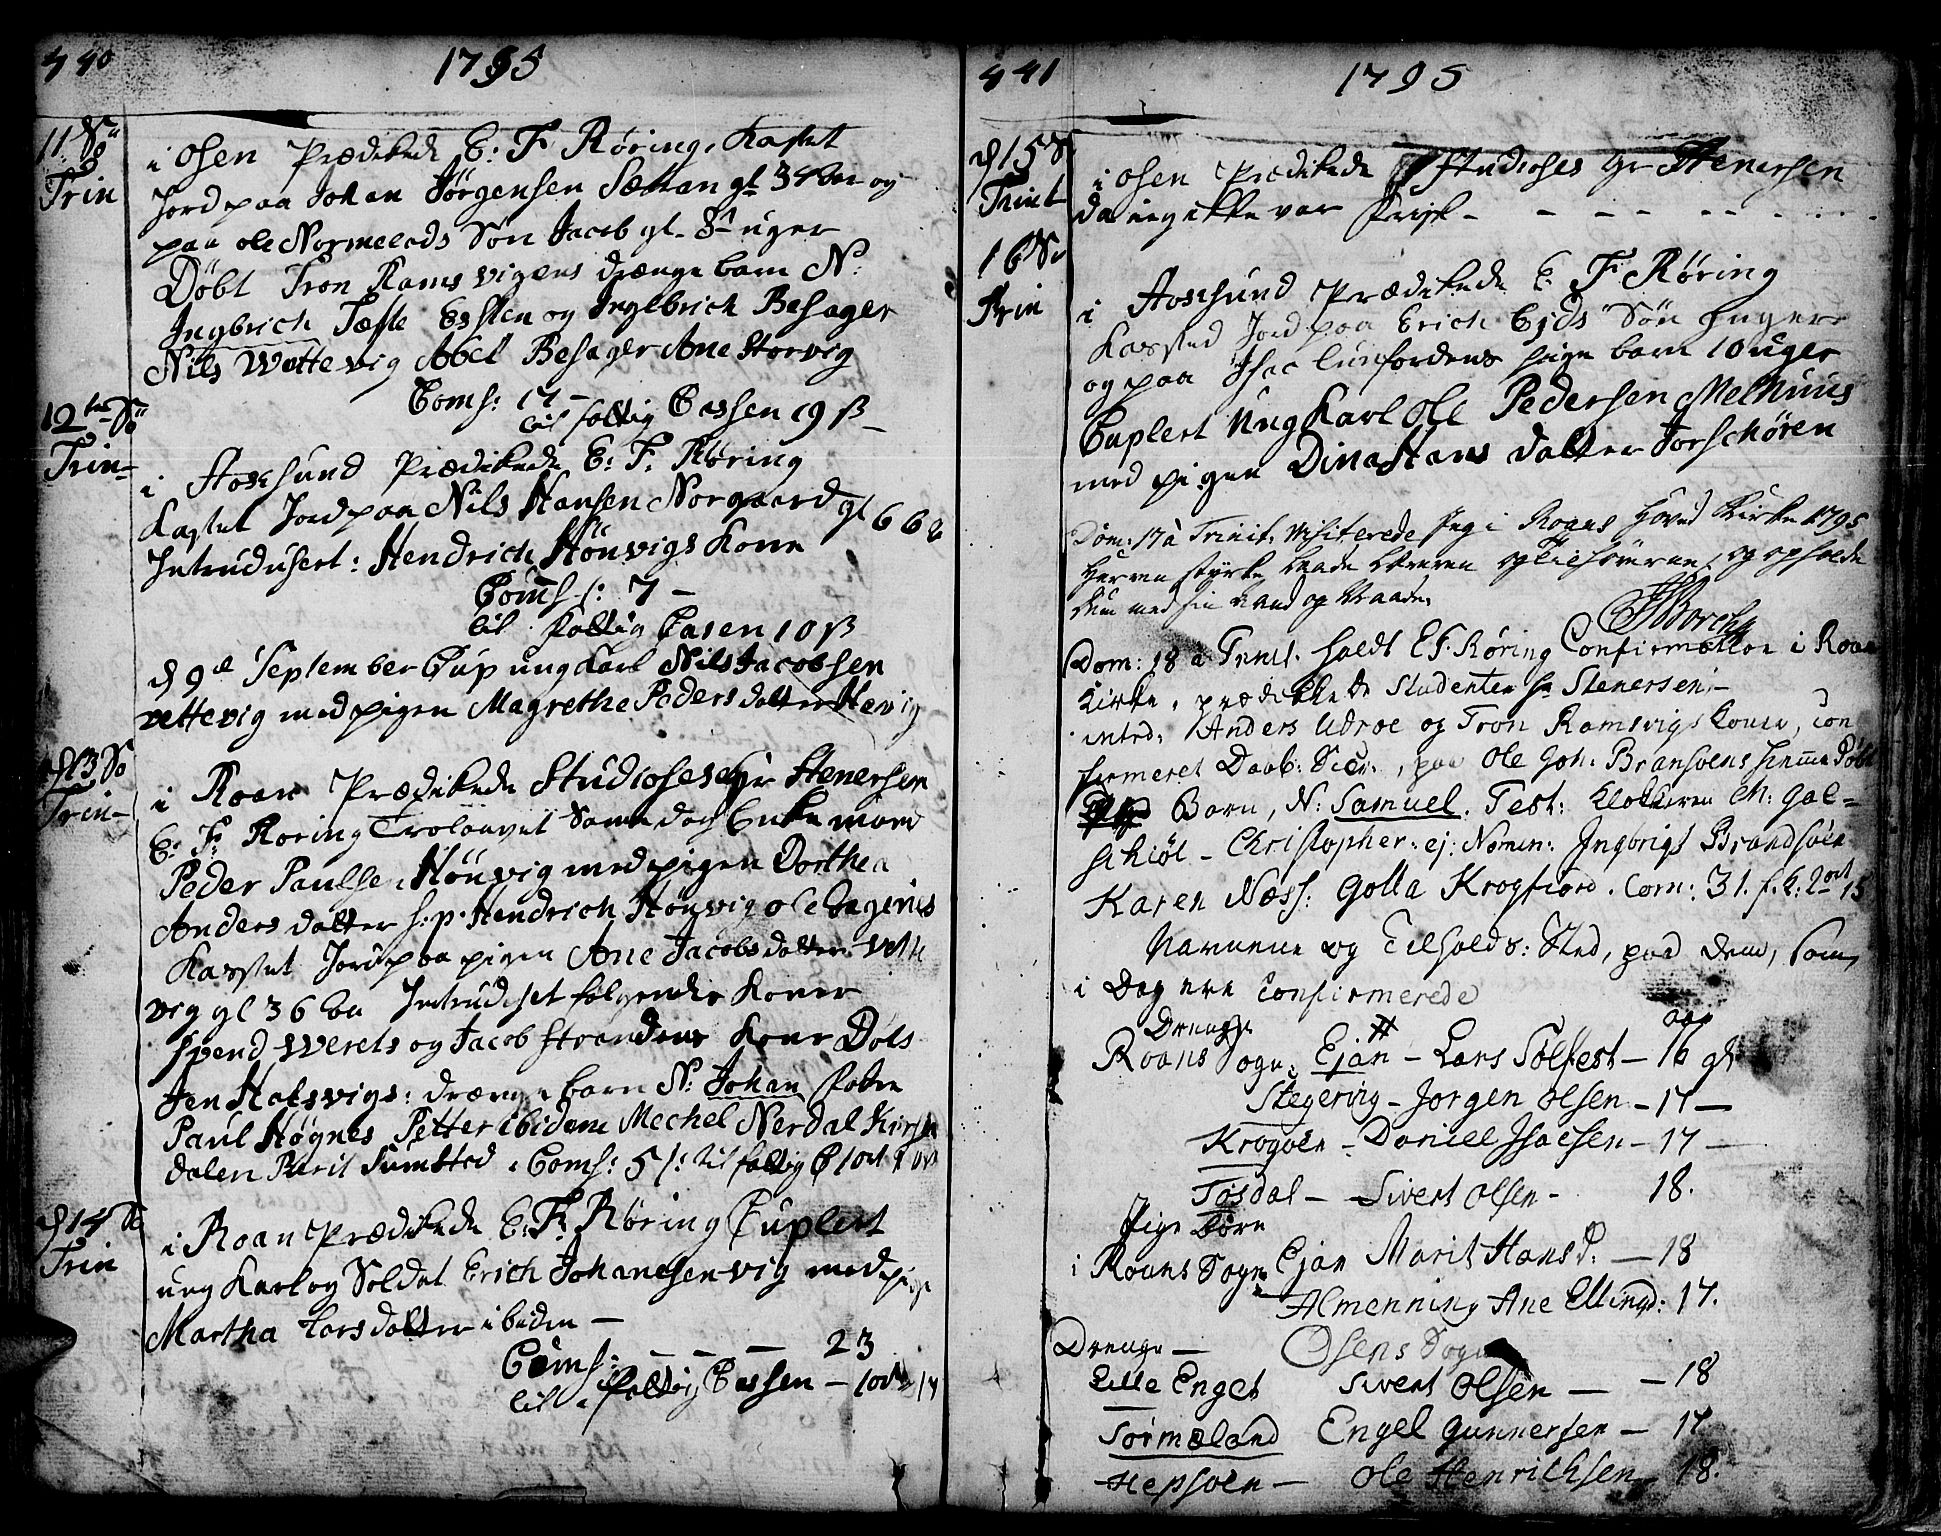 440
1795
11. Sö
Trin
i Osen Prædikede E: F: Røring. Kastet
Jord paa Johan Jörgensen Sætran gl 34 aar og
paa Ole Normelods Sön Jacob gl. 8 uger
Döbt Tron Ramsvigens drænge barn N:
Ingbrich Tæste Essten og Ingebrich Besager
Nils Wettevig Abel Besager Ane Storvig
Coms: 17 -
til fattig Cassen 19 ß -
12te Sö
Trin-
i Hoxsund Prædikede E: F: Røring
Kastet Jord paa Nils Hansen Norgaard gl 66
Intrudusert: Hendrich Hönvigs Kone
Coms: 7 -
til fattig Casen 10 ß
d 9de September Cup ung Karl Nils Jacobsen
vettevig med pigen Magrethe Peders datter Hevig
d 13 So
Trin-
i Roan Prædikede Studioses Hr Stenersen
E: F: Roring Trolovet Samme dag Enke mand
Peder Paulsen Hönvig med pigen Dorthea
Anders datter s: p: Hendrich Hönvig ole
Kasstet Jord paa pigen Ane Jacobs datter Vette
vig gl 36 Intrudiset følgende Koner
Svend Werets og Jacob Strandens Kone Döbt
Jen Hatsvigs: drænge barn N: Johan fadere
Paul Høgnes Petter ibidem Mechel Nerdal Kirsten
dalen Parit Sumsted. Coms: 51: til fattig C 1 ort
d 14 So
Trin
i Roan Prædikede E: F: Røring Cuplert
ung Karl og Soldat Erich Johanesen vig med pige
Martha Larsdatter ibiden -
Coms: - - - 23
til fattig Cassen - 1 ort 14
441
1795
d 15 S
Trinit
i Osen Prædikede Studioses Hr Stenersen
da ieg ikke var frisk - - - - - - -
16 So
Trin
i Hoxsund Prædikede E. F. Røring
Kassted Jord paa Erich Ejds Sön uger
og paa Isac lunfordens pige barn 10 uger
Cuplert Ung Karl Ole Pedersen Melhuus
med pigen Dina Hans datter Jorschören
Dom: 17 à Trinit: visiterede Jeg i Roans Hoved Kirke 1795
Herren styrke baade Læreren og Tilhörerne, og opholde
dem med sin aand og Naade.
Borch
Dom: 18 a Trinit. holdt E F. Røring Confirmation i Roan
Kirke, prædikede Studenten hr Stenersen -
intrd: Anders Udroe og Tron Ramsvigs koner, con
firmeret Daab: paa Ole Joh: Bransöens hiemme Döbt
Barn, N: Samuel. Test: klokkeren Ch: Gal=
schiöt - Christopher: ej: Nomen: Ingbrigt Brandsöen
Karen Næss: Golla Krogfiord. Com: 31. f. C: 2 ort 15
Navnene og Tilholds: Sted, paa dem, som
i Dag ere Confirmerede
Drenge
aar
Roans Sogn. Ejan - Lars Solfest - 16 gl
Stegering - Jorgen Olsen - 17 -
Krogöen - Daniel Isacsen - 17 -
Tosdal - Sivert Olsen - 18.
Pige Börn
i Roans Sogn Ejan Marit Hansd: - 18
Almenning Ane Ellingd: 17.
Drenge - Osens Sogn
Lille Enget Sivert Olsen - - 18
Sörmeland Engel Gunnersen - 17
Hepsoen - Ole Henrichsen 18.